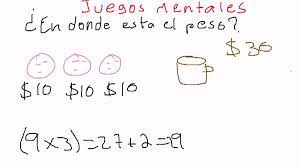 Juegos Mentales
¿En donde esta el peso?
$30
$10 $10 $10
(9x3)=27+2=29